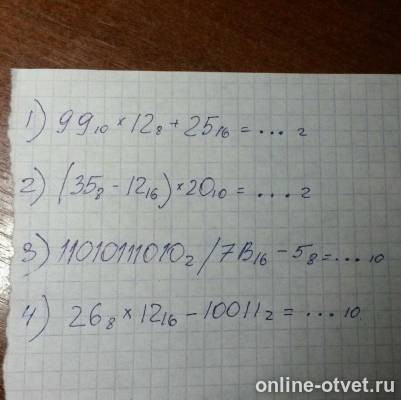 1) 99₁₀ × 12₈ + 25₁₆ = ... ₂
2) (35₈ - 12₁₆) × 20₁₀ = ... ₂
3) 11010111010₂ / 7B₁₆ - 5₈ = ... ₁₀
4) 26₈ × 12₁₆ - 10011₂ = ... ₁₀.
online-otvet.ru